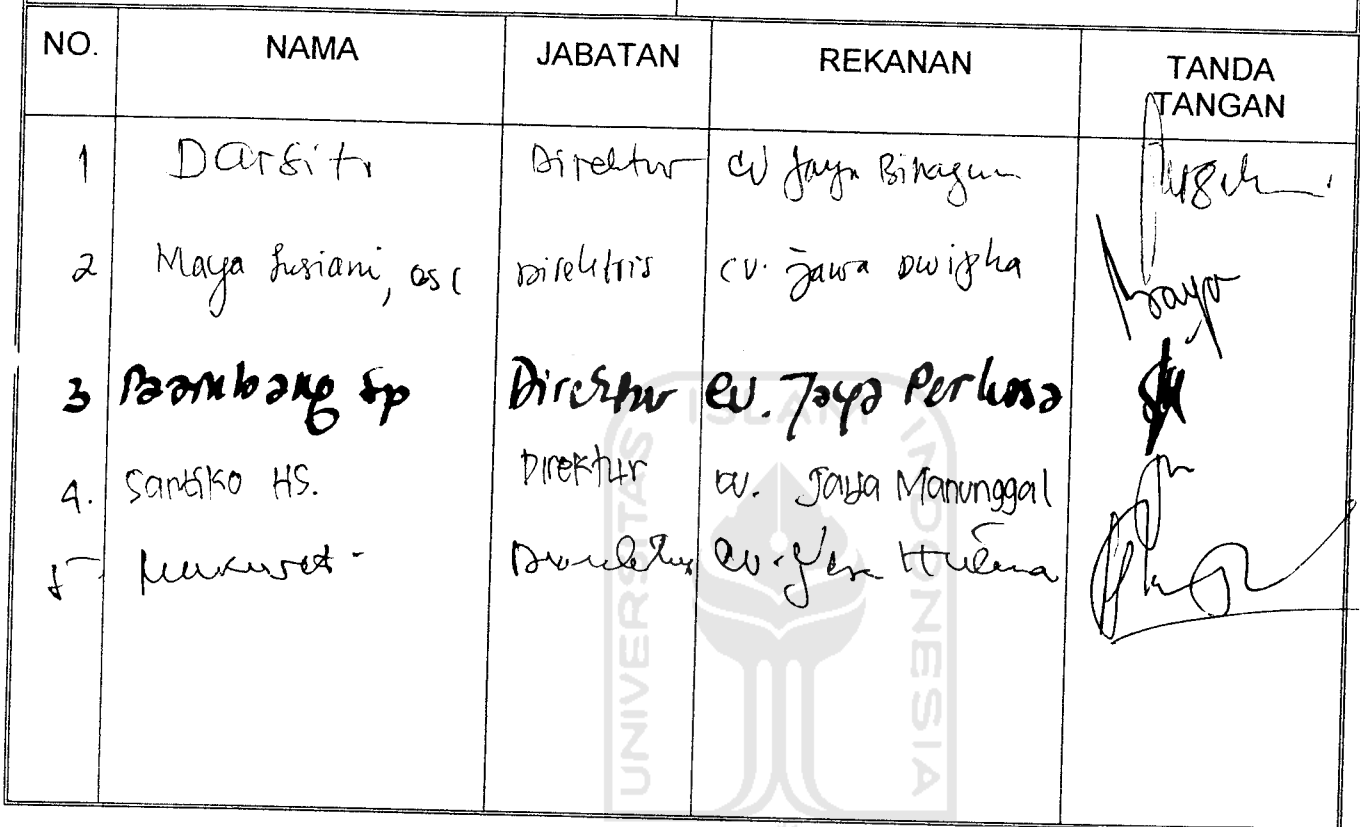 NO. NAMA JABATAN REKANAN TANDA
TANGAN
1 Darsiti Direktur CV Jaya
2 Maya Lusiani, Direktris CV. Jawa Dwipha
3 Baambang Sp Direktur CV. Jaya Perkasa
4. Santiko HS. Direktur CV. Jaya Manunggal
5 Direktur CV.
UNIVERSITAS
ISLAM
INDONESIA